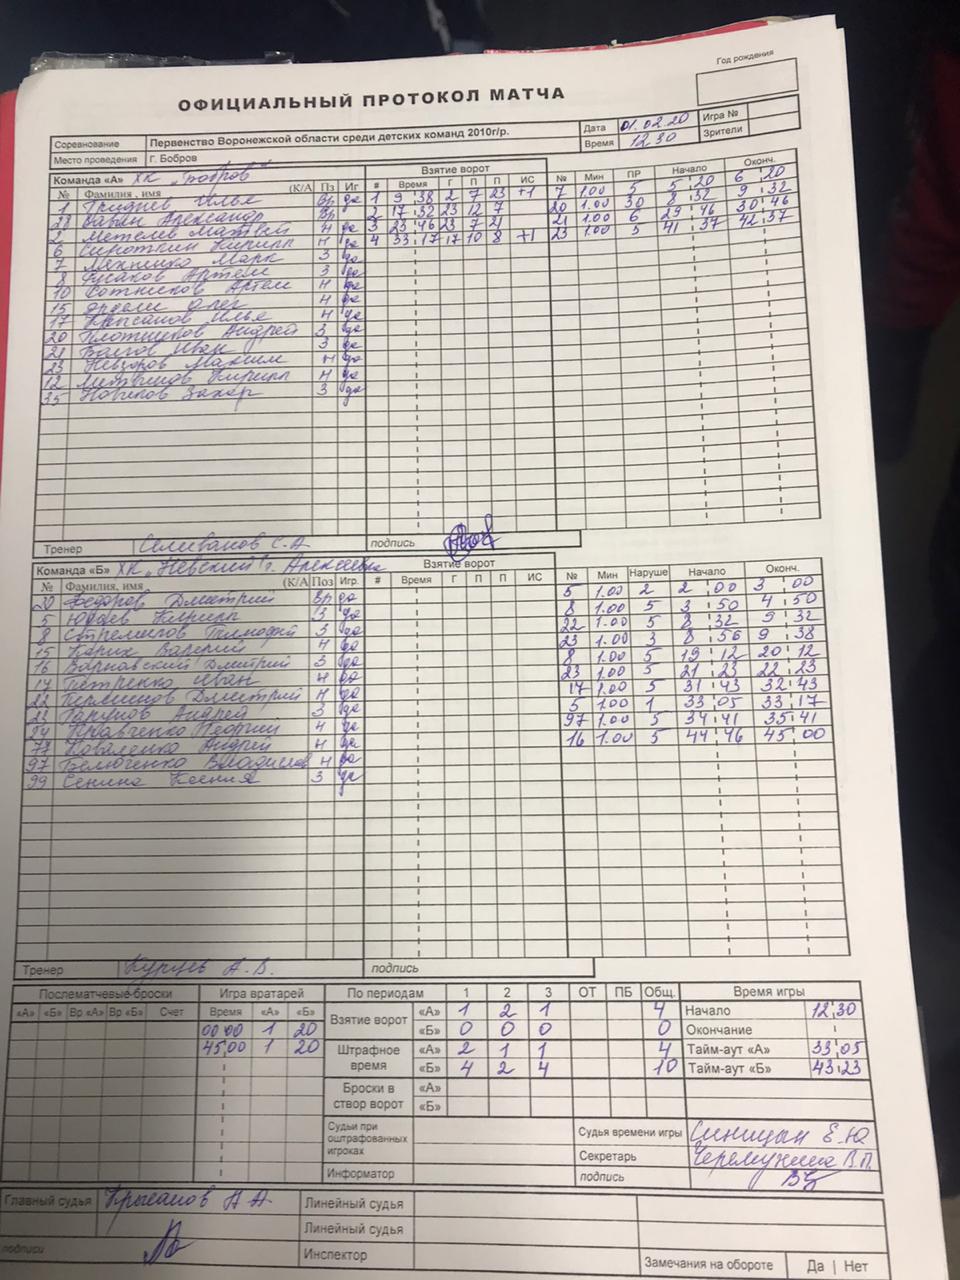 Год рождения
ОФИЦИАЛЬНЫЙ ПРОТОКОЛ МАТЧА
Соревнование Первенство Воронежской области среди детских команд 2010г/р. Дата 01.02.20 Игра №
Место проведения Г. Бобров Время 12 30 Зрители
Команда «А» ХК „Бобров“ Взятие ворот
№ Фамилия , имя (К/А Пз Иг # Время Г П П ИС № Мин ПР Начало Оконч.
1 Илья Вр да 1 9 38 2 7 23 +1 7 1.00 5 5 20 6 20
28 Александр Вр 2 17 32 23 12 7 20 1.00 30 8 32 9 32
2 Метелев Матвей Н да 3 23 46 23 7 21 21 1.00 6 29 46 30 46
6 Сироткин Кирилл Н да 4 33 17 17 10 8 +1 23 1.00 5 41 37 42 37
7 Марк З да
8 Русаков Артем З да
10 Сотников Артем Н да
15 Олег Н да
17 Крысанов Илья Н да
20 Плотников Андрей З да
21 Болгов Иван З да
23 Невзоров Максим Н да
12 Кирилл Н да
35 Новиков Захар З да
Тренер Селиванов С.А подпись
Команда «Б» ХК „Невский“ г. Алексеевка Взятие ворот
№ Фамилия, имя (К/А Поз Игр. # Время Г П П ИС № Мин Наруше Начало Оконч.
20 Федоров Дмитрий Вр да 5 1.00 2 2 00 3 00
5 Юдаев Кирилл З да 8 1.00 5 3 50 4 50
8 Тимофей З да 22 1.00 5 8 32 9 32
15 Карих Валерий Н да 23 1.00 3 8 56 9 38
16 Варнавский Дмитрий З да 8 1.00 5 19 12 20 12
17 Петренко Иван Н да 23 1.00 5 21 23 22 23
22 Дмитрий Н да 17 1.00 5 31 43 32 43
23 Андрей З да 5 1.00 1 33 05 33 17
24 Кравченко Георгий Н да 97 1.00 5 34 41 35 41
77 Коваленко Андрей Н да 16 1.00 5 44 46 45 00
97 Владислав Н да
99 Сенина Ксения З да
Тренер А.В. подпись
Послематчевые броски Игра вратарей По периодам 1 2 3 ОТ ПБ Общ. Время игры
«А» «Б» Вр «А» Вр «Б» Счет Время «А» «Б» Взятие ворот «А» 1 2 1 4 Начало 12 30
00 00 1 20 «Б» 0 0 0 0 Окончание
45.00 1 20 Штрафное время «А» 2 1 1 4 Тайм-аут «А» 33 05
«Б» 4 2 4 10 Тайм-аут «Б» 43 23
Броски в створ ворот «А»
«Б»
Судьи при оштрафованных игроках Судья времени игры Синицын Е.Ю
Секретарь В.П.
Информатор подпись
Главный судья Крысанов Н А Линейный судья
Линейный судья
подписи Инспектор Замечания на обороте Да | Нет